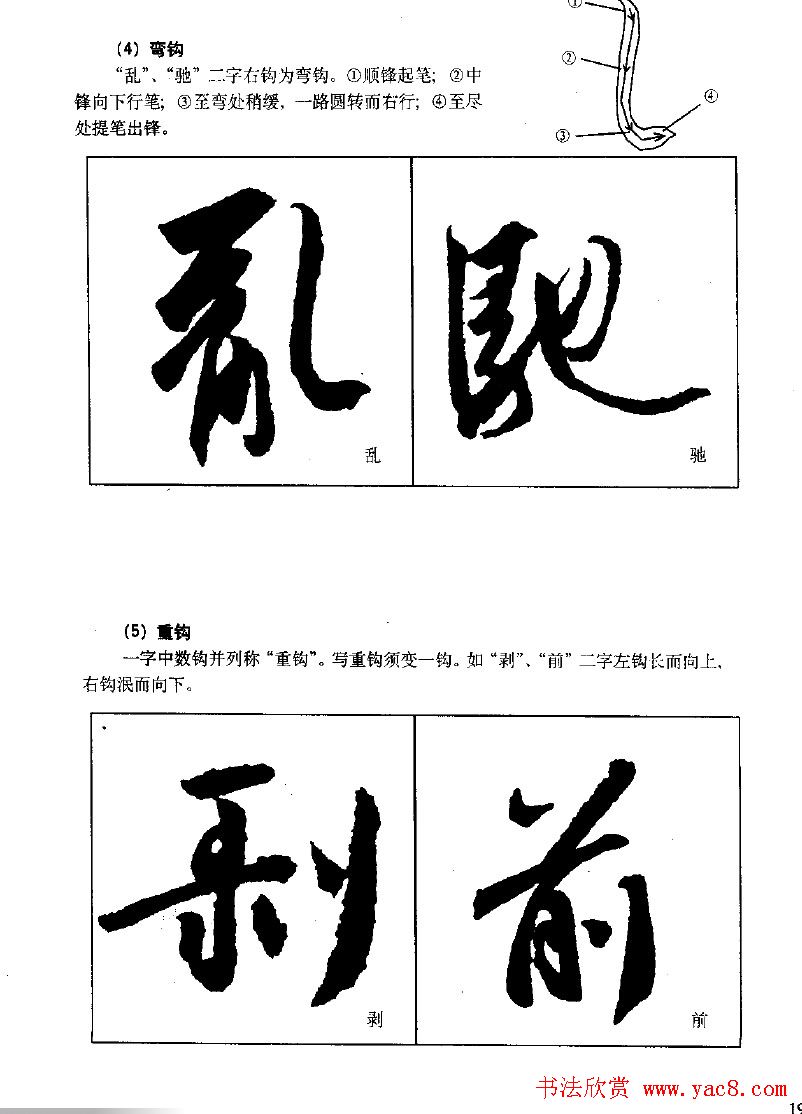 ①
(4) 弯钩
“乱”、“驰”二字右钩为弯钩。①顺锋起笔;②中
锋向下行笔;③至弯处稍缓,一路圆转而右行;④至尽
处提笔出锋。
②
④
③
亂 馳
乱 驰
(5) 重钩
一字中数钩并列称“重钩”。写重钩须变一钩。如“剥”、“前”二字左钩长而向上,
右钩泯而向下。
剥 前
剥 前
书法欣赏 www.yac8.com
19